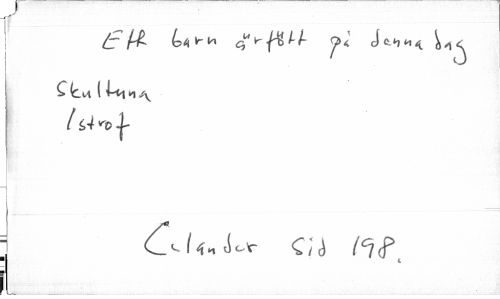 Ett barn är fött på denna dag
Skultuna
1 strof
Celander sid 198.